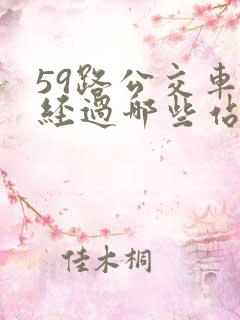 59路公交車
經過哪些佔
佳木桐